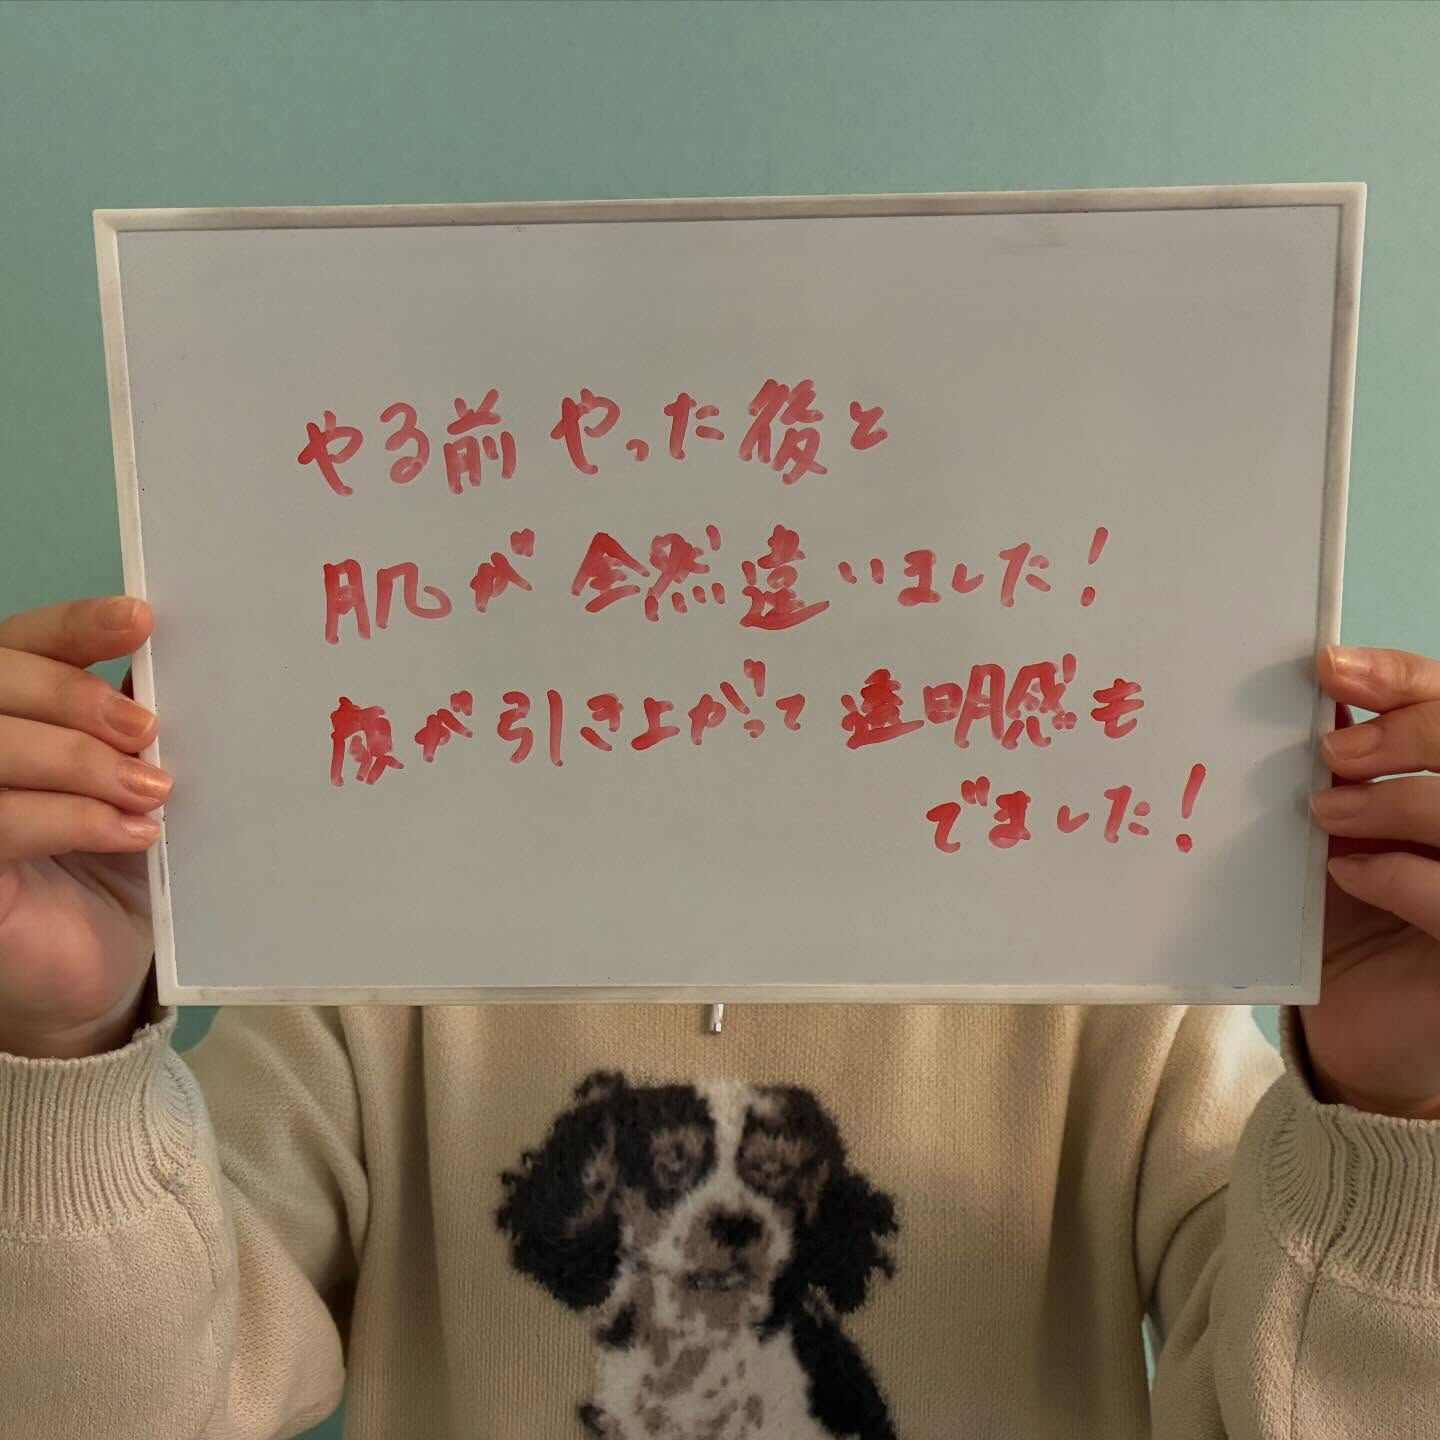 やる前 やった後と
肌が全然違いました！
顔が引き上がって透明感も
でました！